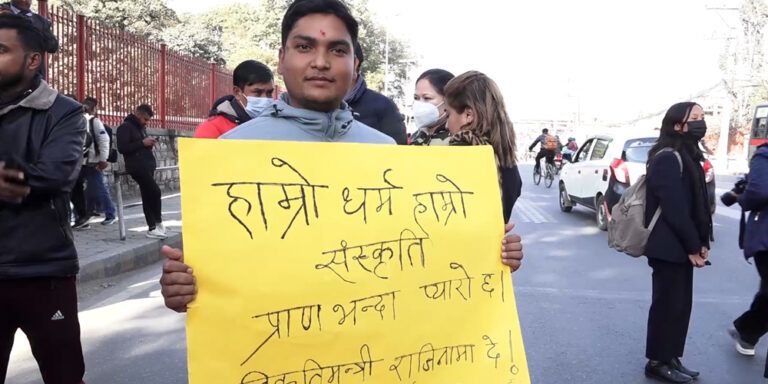 हाम्रो धर्म हाम्रो
संस्कृति
प्राण भन्दा प्यारो छ।
विकृतिमन्त्री राजिनामा दे!